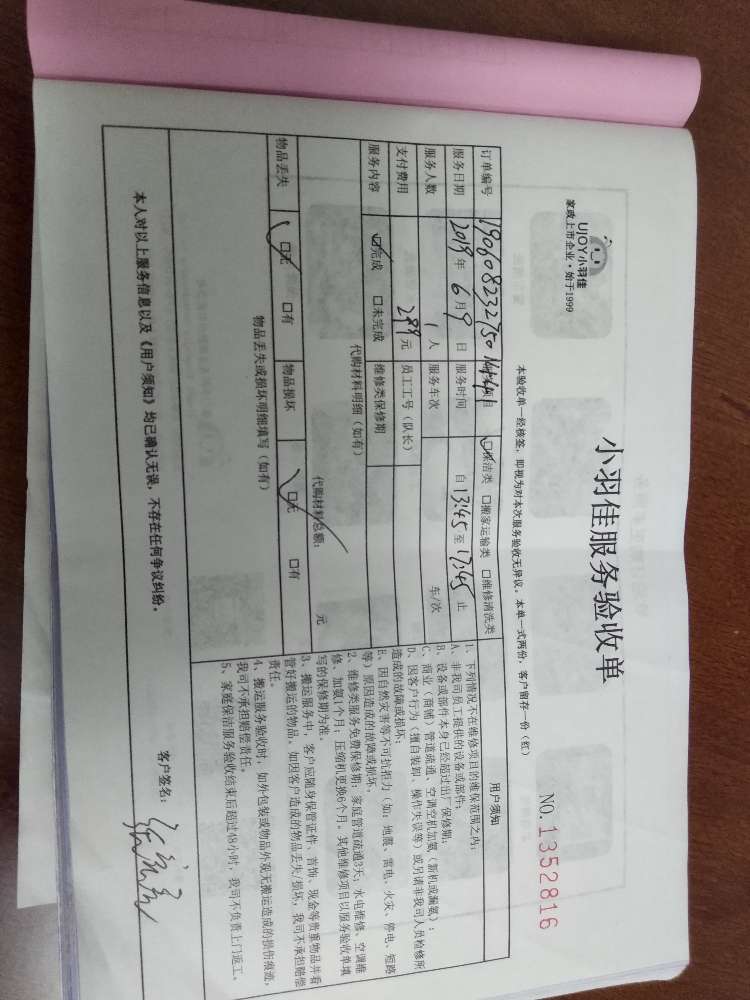 UJOY小羽佳
家政上市企业·始于1999
小羽佳服务验收单
NO.1352816
本验收单一经核签，即视为对本次服务验收无异议。本单一式两份，客户留存一份（红）
订单编号 190608232750 项目 保洁类 搬家运输类 维修清洗类
服务日期 2019年6月9日 服务时间 自13:45至17:45止
服务人数 1人 服务车次 车/次
支付费用 289元 员工工号（队长）
服务内容 完成 未完成 维修类保修期
代购材料明细（如有）
代购材料总额： 元
物品丢失 无 有 物品损坏 无 有
物品丢失或损坏明细填写（如有）
用户须知
1、下列情况不在维修项目的维保范围之内：
A、非我司员工提供的设备或部件；
B、设备或部件本身已经超过出厂保修期；
C、商业（商铺）管道疏通、空调空机加氨（新机或漏氨）；
D、因客户行为（擅自装卸、操作失误等）或另请非我司人员检修所
造成的故障或损坏；
E、因自然灾害等不可抗拒力（如：地震、雷电、火灾、停电、短路
等）原因造成的故障或损坏。
2、维修类服务免费保修期：家庭管道疏通3天；水电维修、空调维
修、加氨1个月；压缩机更换6个月。其他维修项目以服务验收单填
写的保修期为准。
3、搬运服务中，客户应随身保管证件、首饰、现金等贵重物品并看
管好搬运的物品。如因客户造成的物品丢失/损坏，我司不承担赔偿
责任。
4、搬运服务验收时，如外包装或物品外观无搬运造成的损伤痕迹，
我司不承担赔偿责任。
5、家庭保洁服务验收结束后超过48小时，我司不负责上门返工。
本人对以上服务信息以及《用户须知》均已确认无误，不存在任何争议纠纷。
客户签名：